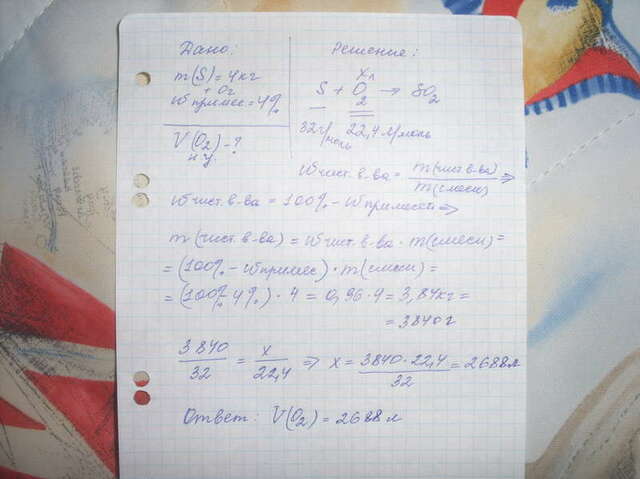 Дано:
m(S) = 4кг
+ O2
ω примес = 4%
V(O2) - ?
н.у.
Решение:
x л
S + O2 → SO2
32г/моль 22,4 л/моль
ω чист. в-ва = m(чист в-ва) / m(смеси) ⇒
ω чист. в-ва = 100% - ω примесей ⇒
m (чист. в-ва) = ω чист. в-ва · m(смеси) =
= (100% - ω примес) · m(смеси) =
= (100% - 4%) · 4 = 0,96 · 4 = 3,84кг =
= 3840г
3840 / 32 = x / 22,4 ⇒ x = 3840 · 22,4 / 32 = 2688л
Ответ: V(O2) = 2688 л